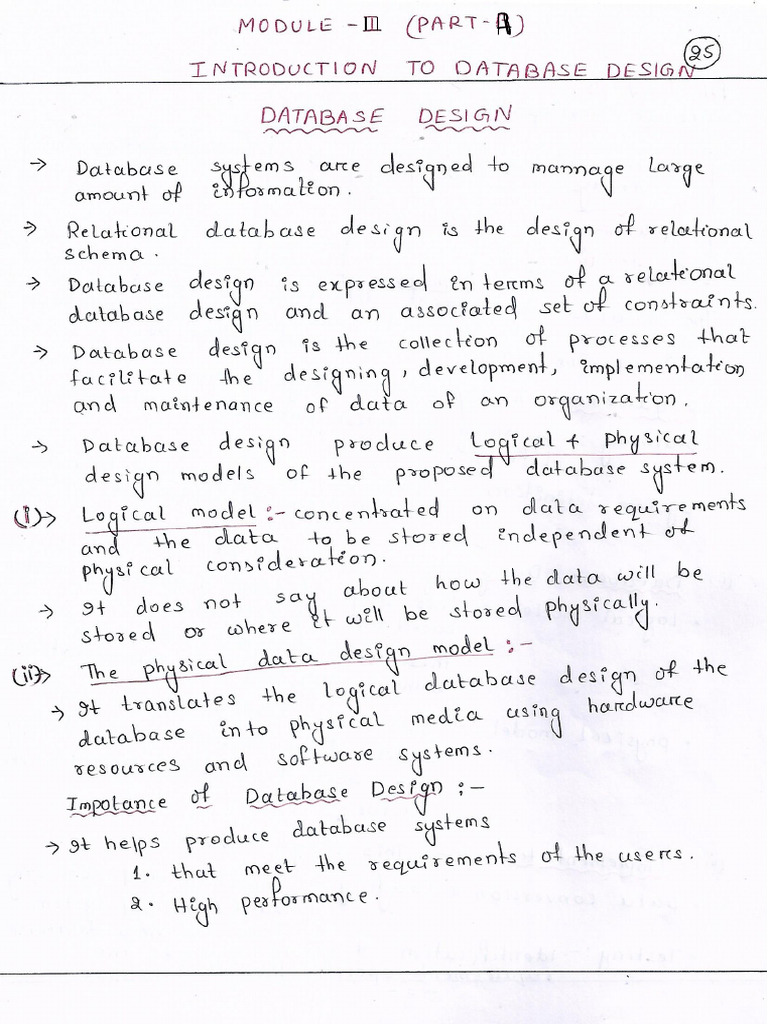 MODULE - III (PART-A)
25
INTRODUCTION TO DATABASE DESIGN
DATABASE DESIGN
→ Database systems are designed to mannage large
amount of information.
→ Relational database design is the design of relational
schema.
→ Database design is expressed in terms of a relational
database design and an associated set of constraints.
→ Database design is the collection of processes that
facilitate the designing, development, implementation
and maintenance of data of an organization.
→ Database design produce Logical + physical
design models of the proposed database system.
(i)→ Logical model :- concentrated on data requirements
and the data to be stored independent of
physical consideration.
→ It does not say about how the data will be
stored or where it will be stored physically.
(ii)→ The physical data design model :-
→ It translates the logical database design of the
database into physical media using hardware
resources and software systems.
Impotance of Database Design :-
→ It helps produce database systems
1. that meet the requirements of the users.
2. High performance.